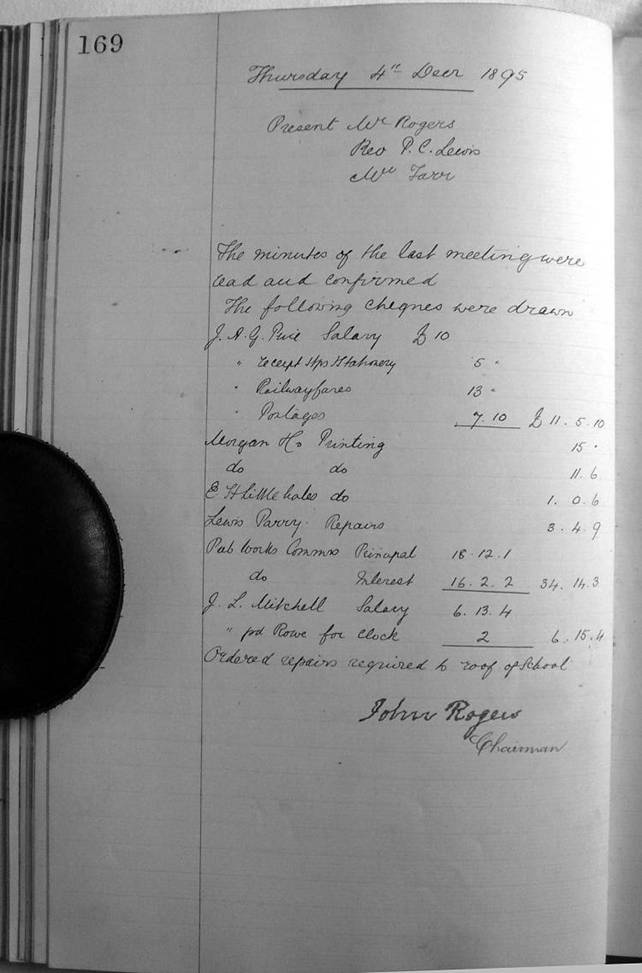 169
Thursday 4th Decr 1895
Present Mr Rogers
Rev P. C. Lewis
Mr Farr
The minutes of the last meeting were
read and confirmed
The following cheques were drawn
J. A. G. Price Salary £10
" receipt Stps Stationery 5 "
" Railway fares 13 "
" Postages 7.10 £11.5.10
Morgan Printing 15 "
do do 11.6
E H Littlehales do 1.0.6
Lewis Parry. Repairs 3.4.9
Pub Works Commrs Principal 18.12.1
do Interest 16.2.2 34.14.3
J. L. Mitchell Salary 6.13.4
" pd Rowe for clock 2 6.15.4
Ordered repairs required to roof of School
John Rogers
Chairman